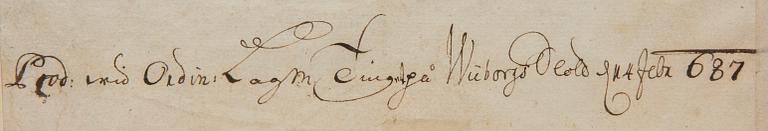 Prod: wid Ordin: Lagm Tinget på Wiborgs Slold d 14 febr 687